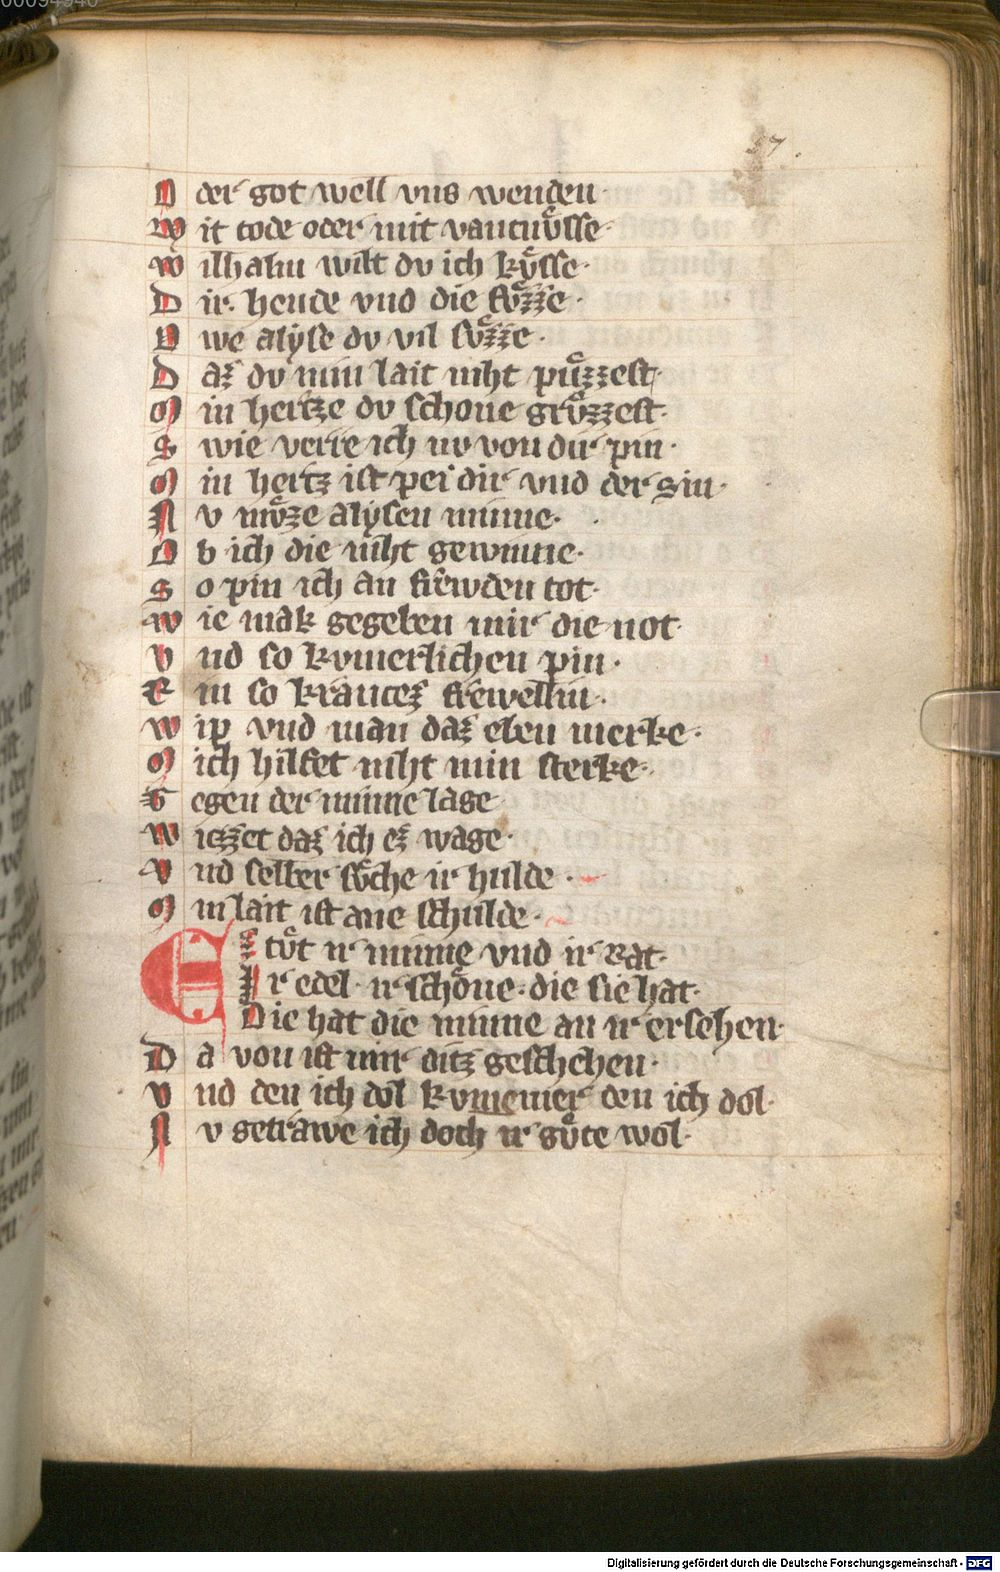 00094940
57.
O der got well vns wenden·
W it tode oder mit vancnvͤsse·
W ilhalm wilt dv ich kvͤsse·
D ir· hende vnd die fvͤzze·
O we alyse dv vil svͤzze·
D az dv min lait niht pvͤzzest·
M in hertze dv schone grvͤzzest·
S wie verre ich nv von dir pin·
M in hertz ist pei dir vnd der sin·
N v mvͤze alysen minne·
O b ich die niht gewinne·
S o pin ich an frewden tot·
W ie mak gegeben mir die not
V nd so kvmerlichen pin·
E in so krancez frewellin·
W ip vnd man daz eben merke·
M ich hilfet niht min sterke·
G egen der minne lage
W izzet daz ich ez wage·
V nd selber svͤche ir hulde·
M in lait ist ane schulde·
E z tvͤt ir minne vnd ir rat·
Ir edel· ir schoͤne· die sie hat·
Die hat die minne an ir ersehen·
D a von ist mir ditz geschehen·
V nd den ich dol kvmemer den ich dol·
N v getrawe ich doch ir gvͤte wol·
Digitalisierung gefördert durch die Deutsche Forschungsgemeinschaft - DFG